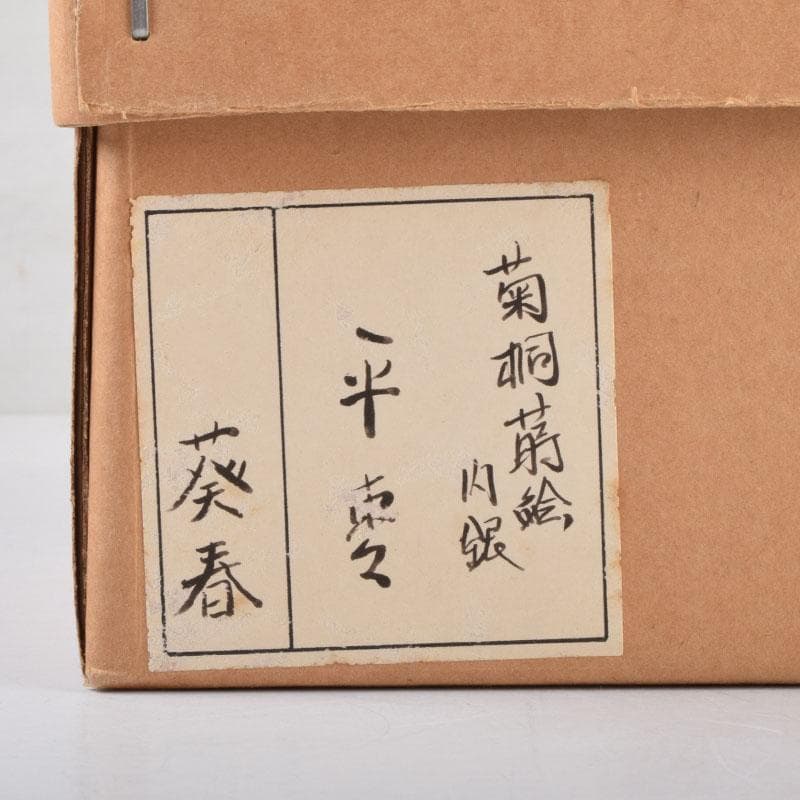 菊桐蒔絵
内銀
平棗
葵春